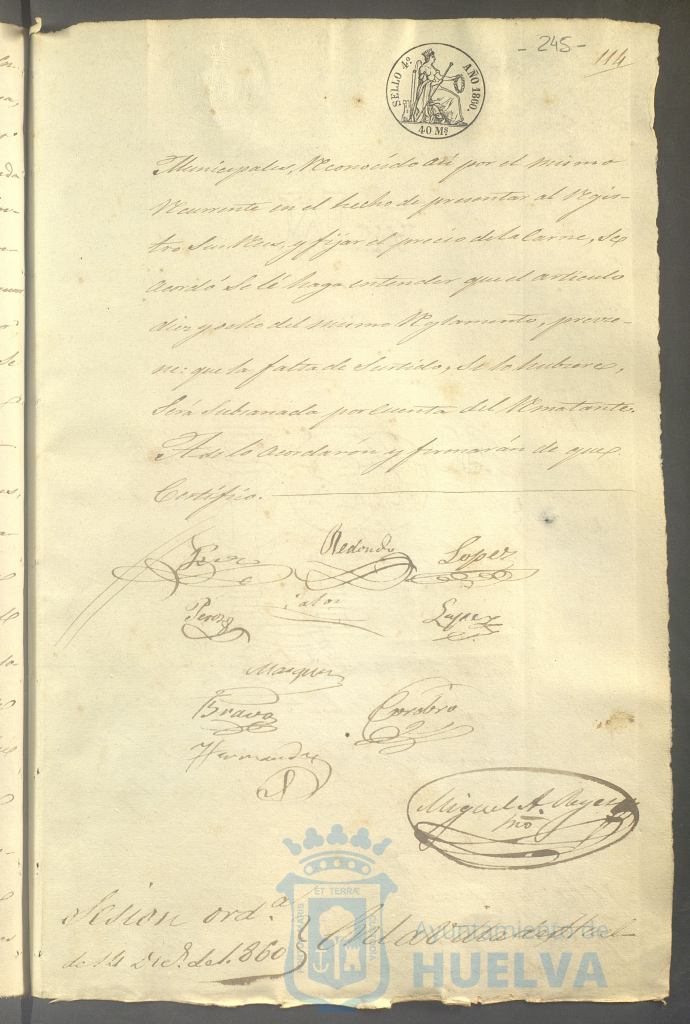 - 245 -
114
SELLO 4º AÑO 1860.
40 Ms
Municipales, Reconocido así por el mismo
Recurrente en el hecho de presentar al Regis-
tro Sus Reses, y fijar el precio de la Carne, Se
acordó Se le haga entender que el articulo
diez y ocho del mismo Reglamento, previe-
ne: que la falta de Surtido, Si lo hubiere,
Será Subsanada por cuenta del Rematante.
Asi lo acordarón y firmarán de que
Certifico.
Redondo Lopez
Perez Lopez
Marquez
Bravo Cordero
Hernandez
Miguel A. Reyes
Srio
Sesion ordª
de 14 Dice. de 1860 } En la villa de Huel
ET TERRÆ
Ayuntamiento de
HUELVA